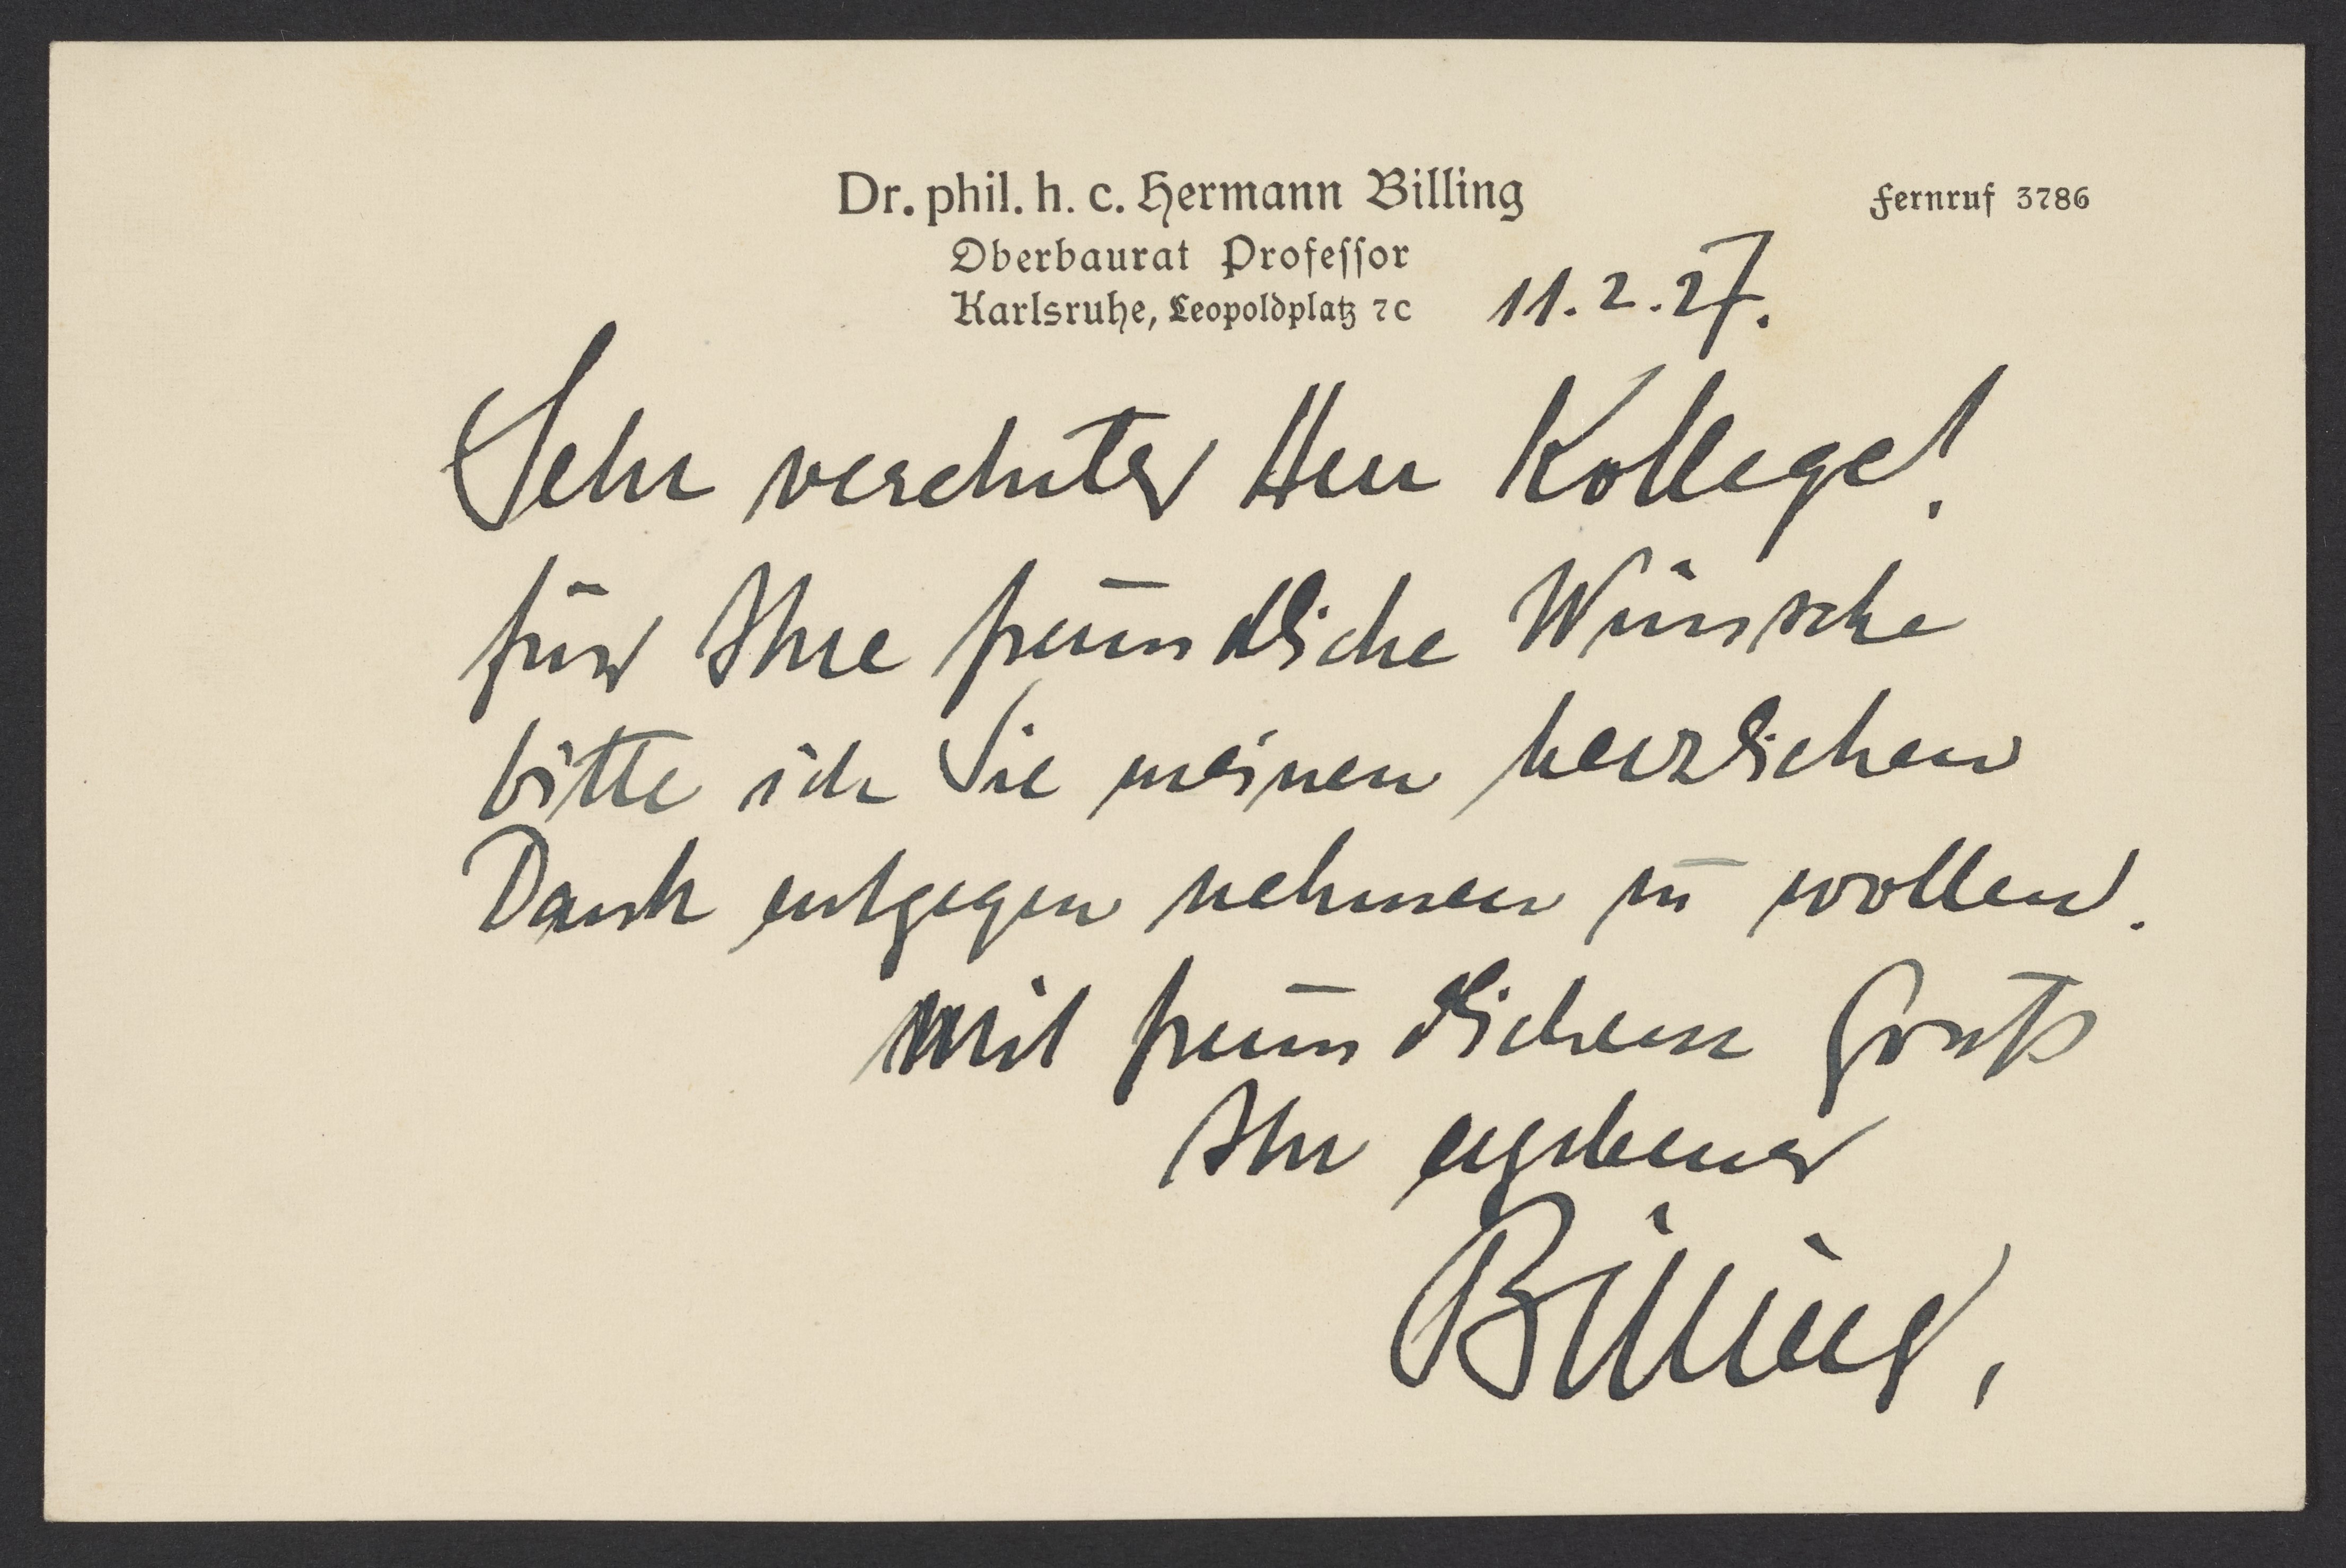 Dr. phil. h. c. Hermann Billing
Fernruf 3786
Oberbaurat Professor
Karlsruhe, Leopoldplatz 7c
11.2.27.
Sehr verehrter Herr Kollege!
für Ihre freundliche Wünsche
bitte ich Sie meinen herzlichen
Dank entgegen nehmen zu wollen.
Mit freundlichem Gruß
Ihr ergebener
Billing.